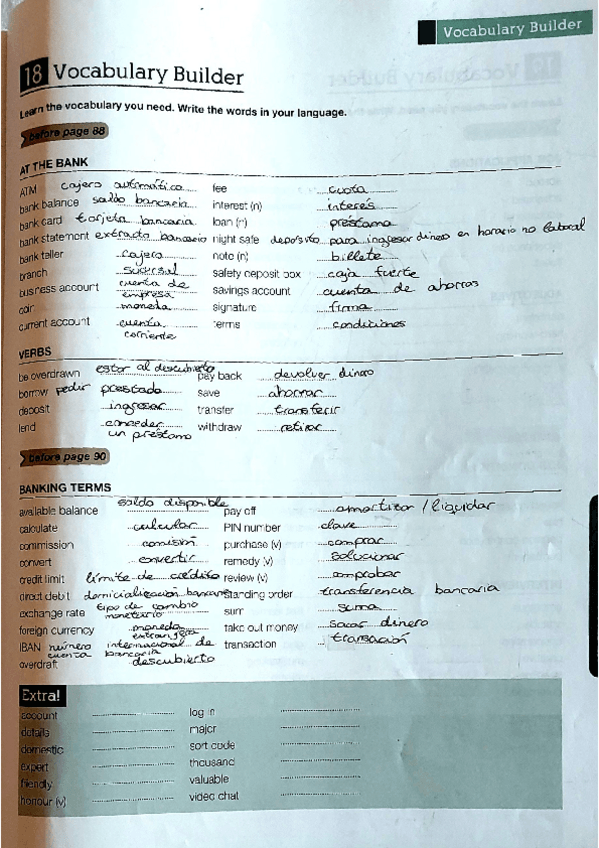 Vocabulary Builder
18 Vocabulary Builder
Learn the vocabulary you need. Write the words in your language.
before page 88
AT THE BANK
ATM cajero automático fee cuota
bank balance saldo bancario interest (n) interés
bank card tarjeta bancaria loan (n) préstamo
bank statement extracto bancario night safe depósito para ingresar dinero en horario no laboral
bank teller cajero note (n) billete
branch sucursal safety deposit box caja fuerte
business account cuenta de empresa savings account cuenta de ahorros
coin moneda signature firma
current account cuenta corriente terms condiciones
VERBS
be overdrawn estar al descubierto pay back devolver dinero
borrow pedir prestado save ahorrar
deposit ingresar transfer transferir
lend conceder un préstamo withdraw retirar
before page 90
BANKING TERMS
available balance saldo disponible pay off amortizar / liquidar
calculate calcular PIN number clave
commission comisión purchase (v) comprar
convert convertir remedy (v) solucionar
credit limit límite de crédito review (v) comprobar
direct debit domicialización standing order transferencia bancaria
exchange rate tipo de cambio monetario sum suma
foreign currency moneda extranjera take out money sacar dinero
IBAN número internacional de cuenta bancaria transaction transación
overdraft descubierto
Extra!
account log in
details major
domestic sort code
expert thousand
friendly valuable
honour (v) video chat